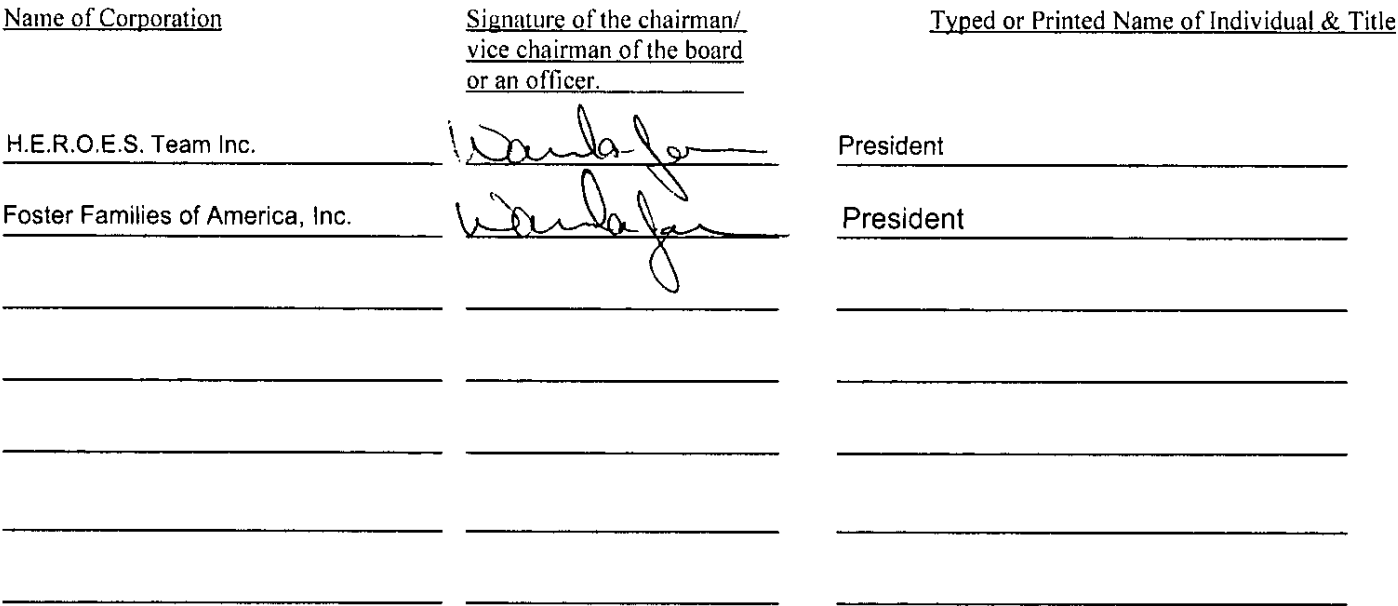 Name of Corporation
Signature of the chairman/
vice chairman of the board
or an officer.
Typed or Printed Name of Individual & Title
H.E.R.O.E.S. Team Inc.
Wanda
President
Foster Families of America, Inc.
Wanda
President